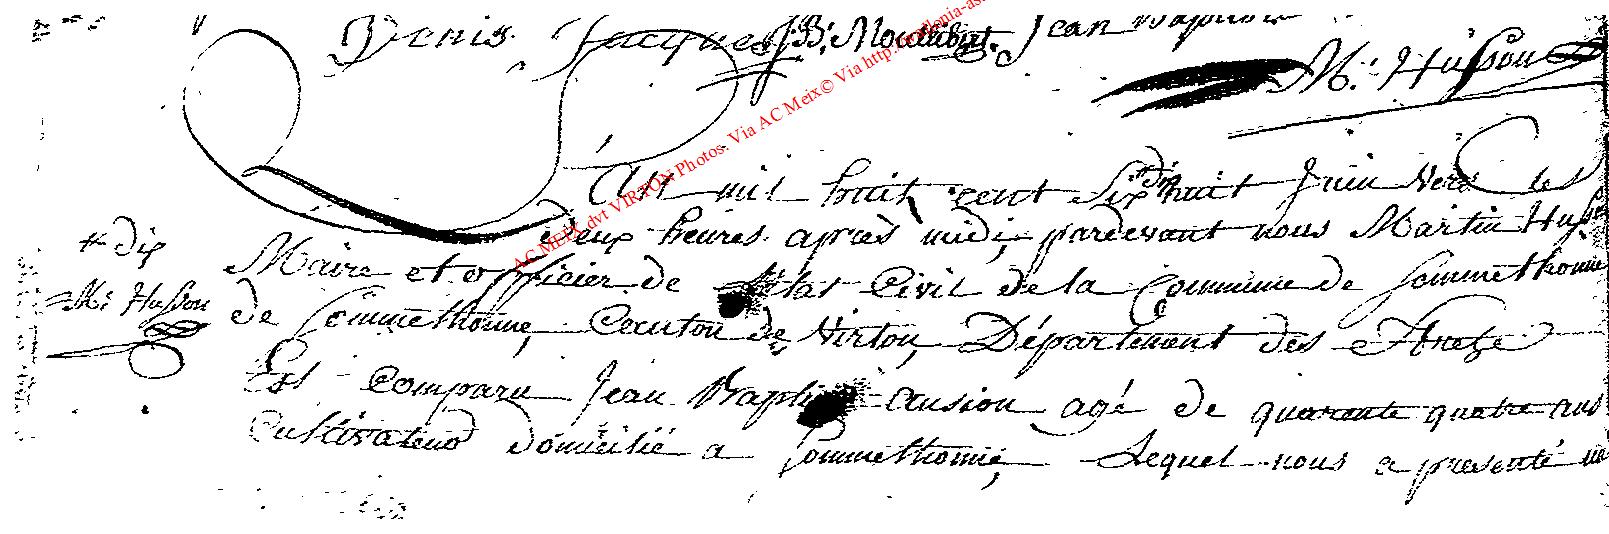 Denis Jacques J: B: Jean Baptiste
M: Husson
L'An mil huit cent Six dix huit Juin vers les
deux heures après midi, pardevant nous Martin Huss
+ dix
Maire et officier de Etat Civil de la Commune de Sommethonne
M: Husson
de Sommethonne, Canton de Virton, Département des Forets
Est Comparu Jean Baptiste ansion agé de quarante quatre ans
Cultivateur Domicilié a Sommethonne, Lequel nous a presenté
AC MEIX dvt VIRTON Photos. Via AC Meix© Via http: